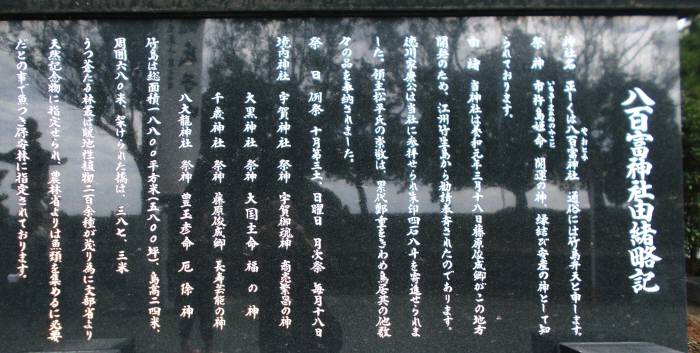 八百富神社由緒略記
神社名 正しくは八百富神社 通俗には竹島弁天と申します。
やおとみ
祭神 市杵島姫命 開運の神、縁結び安産の神として知
いちきしまひめのみこと
られております。
由緒 当神社は養和元年三月十八日藤原俊成卿がこの地方
開発のため、江州竹生島から勧請奉斎されたのであります。
徳川家康公は当社に参拝せられ朱印四石八斗を寄進せられま
した。領主松平氏の崇敬は、累代 きわめ鳥居其の他数
々の品を奉納されました。
祭日 例祭 十月第三土、日曜日 月次祭 毎月十八日
境内神社 宇賀神社 祭神 宇賀御魂神 商売繁昌の神
大黒神社 祭神 大国主命 福の神
千歳神社 祭神 藤原俊成卿 長寿芸能の神
八大龍神社 祭神 豊玉彦命 厄除神
竹島は総面積一八九〇〇平方米(五八〇〇坪)島高二四米、
周囲六八〇米、架けられた橋は、三八七、三米
うつ蒼たる林叢は暖地性植物二百余種が茂り為に文部省より
天然記念物に指定せられ、農林省よりは魚類を集めるに必要
だとの事で魚つき保安林に指定されております。